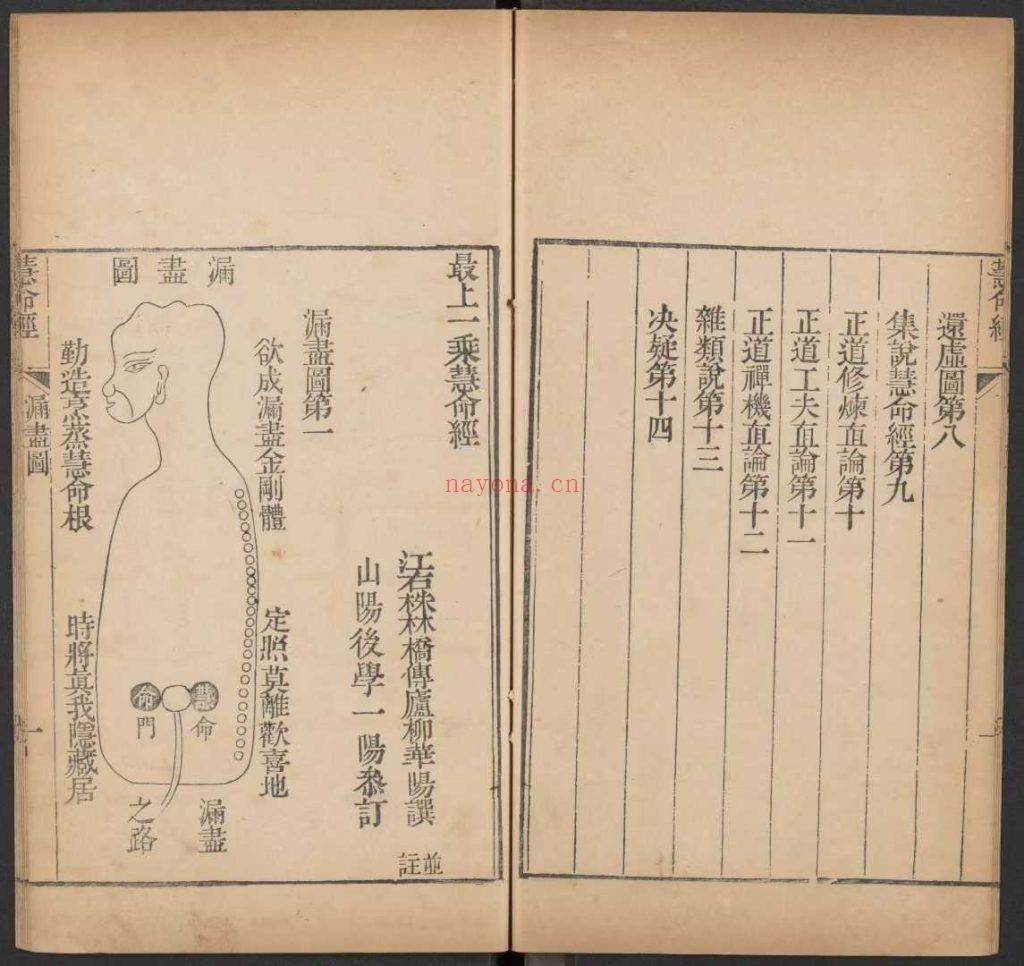 慧命經
還虛圖第八
集說慧命經第九
正道修煉直論第十
正道工夫直論第十一
正道禪機直論第十二
雜類說第十三
决疑第十四
最上一乘慧命經
江右株林橋傳廬柳華陽譔
並註
山陽後學一陽叅訂
漏盡圖第一
欲成漏盡金剛體
定照莫離歡喜地
漏盡圖
慧命
命門
漏盡
之路
勤造烹蒸慧命根
時將眞我隱藏居
慧命經
漏盡圖
一
nayona.cn